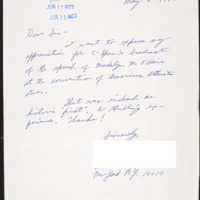 May
JUN 11 REC'D
JUN 11 REC'D
Dear Sir –
I want to express my
appreciation for C-Span's broadcast
of the speech of Madalyn M. O'Hair
at the convention of American Atheists
That was indeed an
historic first! A thrilling ex-
perience. Thanks!
Sincerely,
New York N.Y.